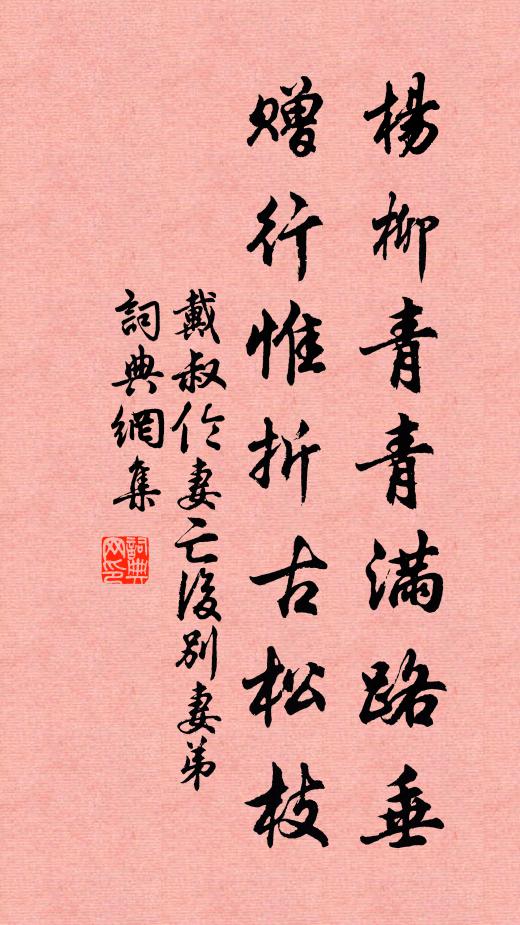 楊柳青青滿路垂
贈行惟折古松枝
戴叔伦妻亡後別妻弟
詞典網集
詞典網印